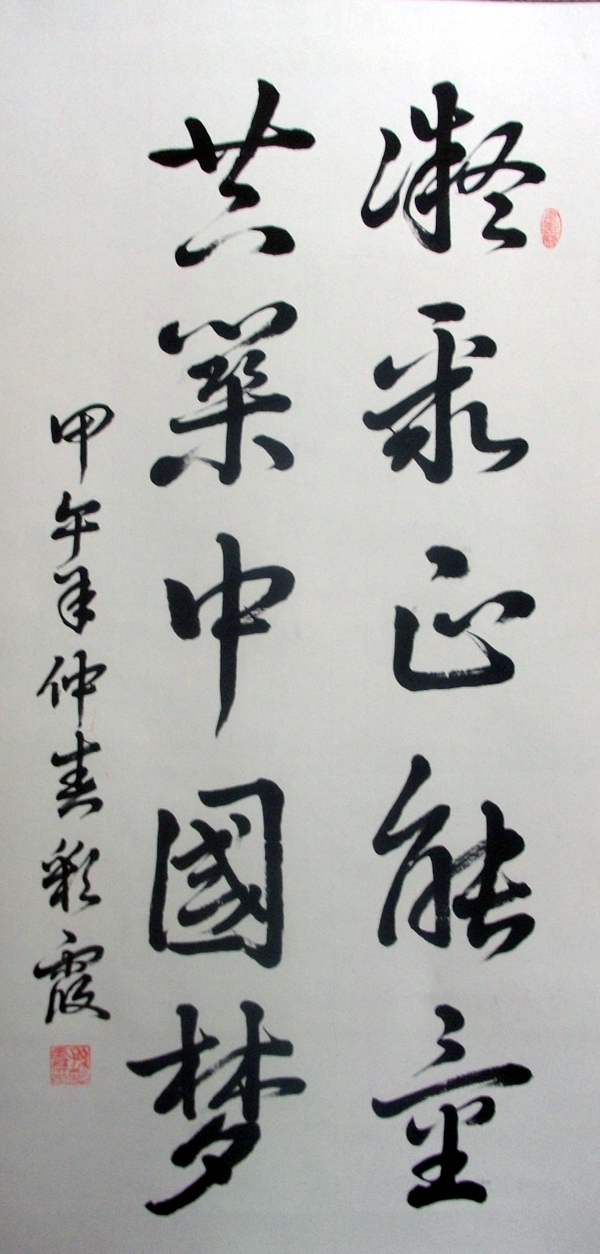 凝聚正能量
共築中國梦
甲午年仲春彩霞